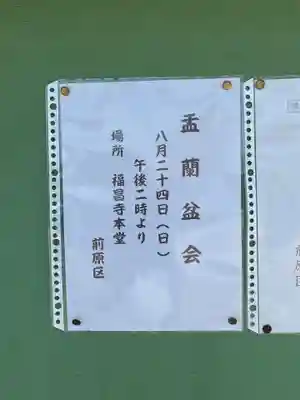 盂蘭盆会
八月二十四日（日）
午後二時より
場所　福昌寺本堂
前原区